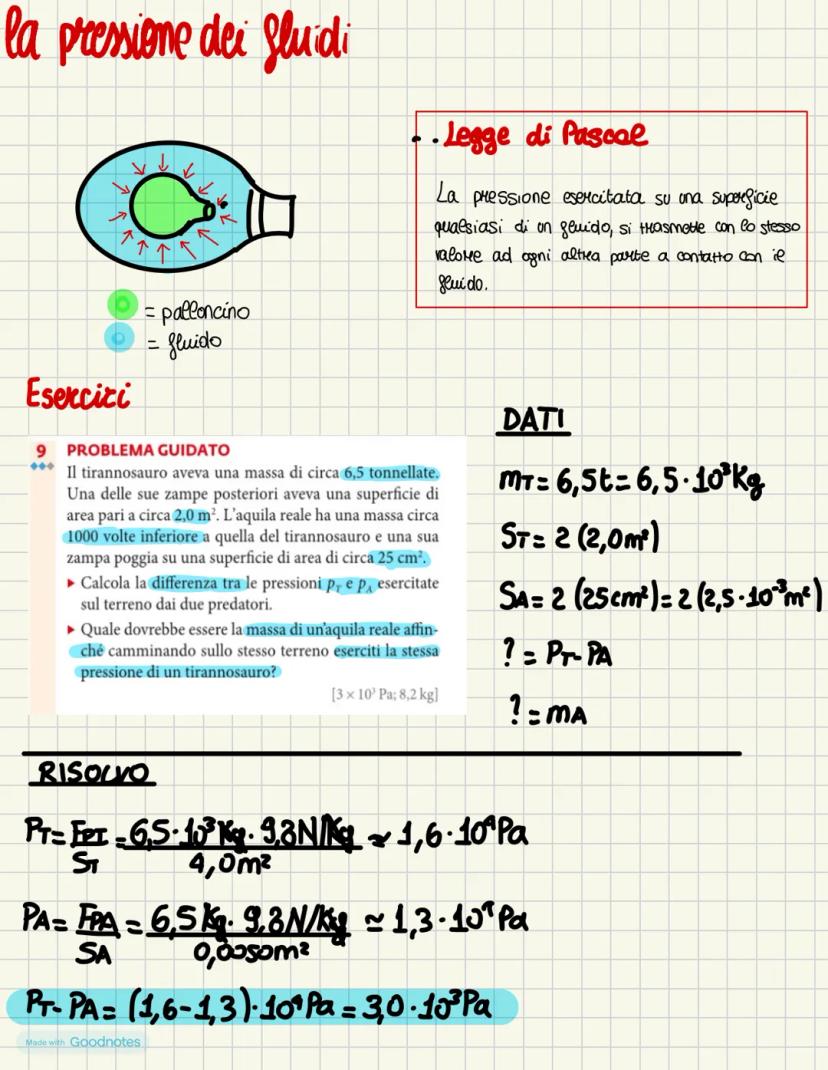 la pressione dei fluidi
Legge di Pascal
La pressione esercitata su una superficie
qualsiasi di un fluido, si trasmette con lo stesso
valore ad ogni altra parte a contatto con il
fluido.
= palloncino
= fluido
Esercizi
9 PROBLEMA GUIDATO
Il tirannosauro aveva una massa di circa 6,5 tonnellate.
Una delle sue zampe posteriori aveva una superficie di
area pari a circa 2,0 m². L'aquila reale ha una massa circa
1000 volte inferiore a quella del tirannosauro e una sua
zampa poggia su una superficie di area di circa 25 cm².
▸ Calcola la differenza tra le pressioni p_T e p_A esercitate
sul terreno dai due predatori.
▸ Quale dovrebbe essere la massa di un'aquila reale affin-
ché camminando sullo stesso terreno eserciti la stessa
pressione di un tirannosauro?
[3 × 10³ Pa; 8,2 kg]
DATI
mT = 6,5t = 6,5·10³Kg
ST = 2 (2,0m²)
SA = 2 (25cm²) = 2 (2,5·10⁻³m²)
? = PT-PA
? = mA
RISOLVO
PT = FPT/ST = 6,5·10³Kg·9,8N/Kg / 4,0m² ≃ 1,6·10⁴Pa
PA = FPA/SA = 6,5Kg·9,8N/Kg / 0,0050m² ≃ 1,3·10⁴Pa
PT-PA = (1,6-1,3)·10⁴Pa = 3,0·10³Pa
Made with Goodnotes